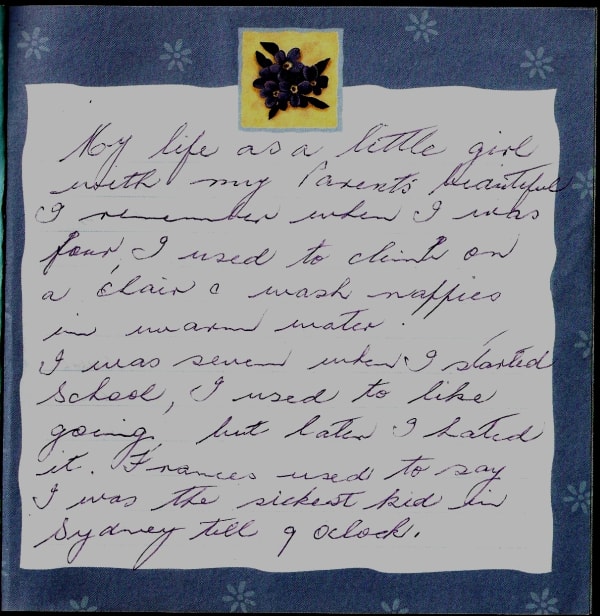 My life as a little girl
with my Parents beautiful
I remember when I was
four, I used to climb on
a chair & wash nappies
in warm water.
I was seven when I started
School, I used to like
going, but later I hated
it. Frances used to say
I was the sickest kid in
Sydney till 9 oclock.